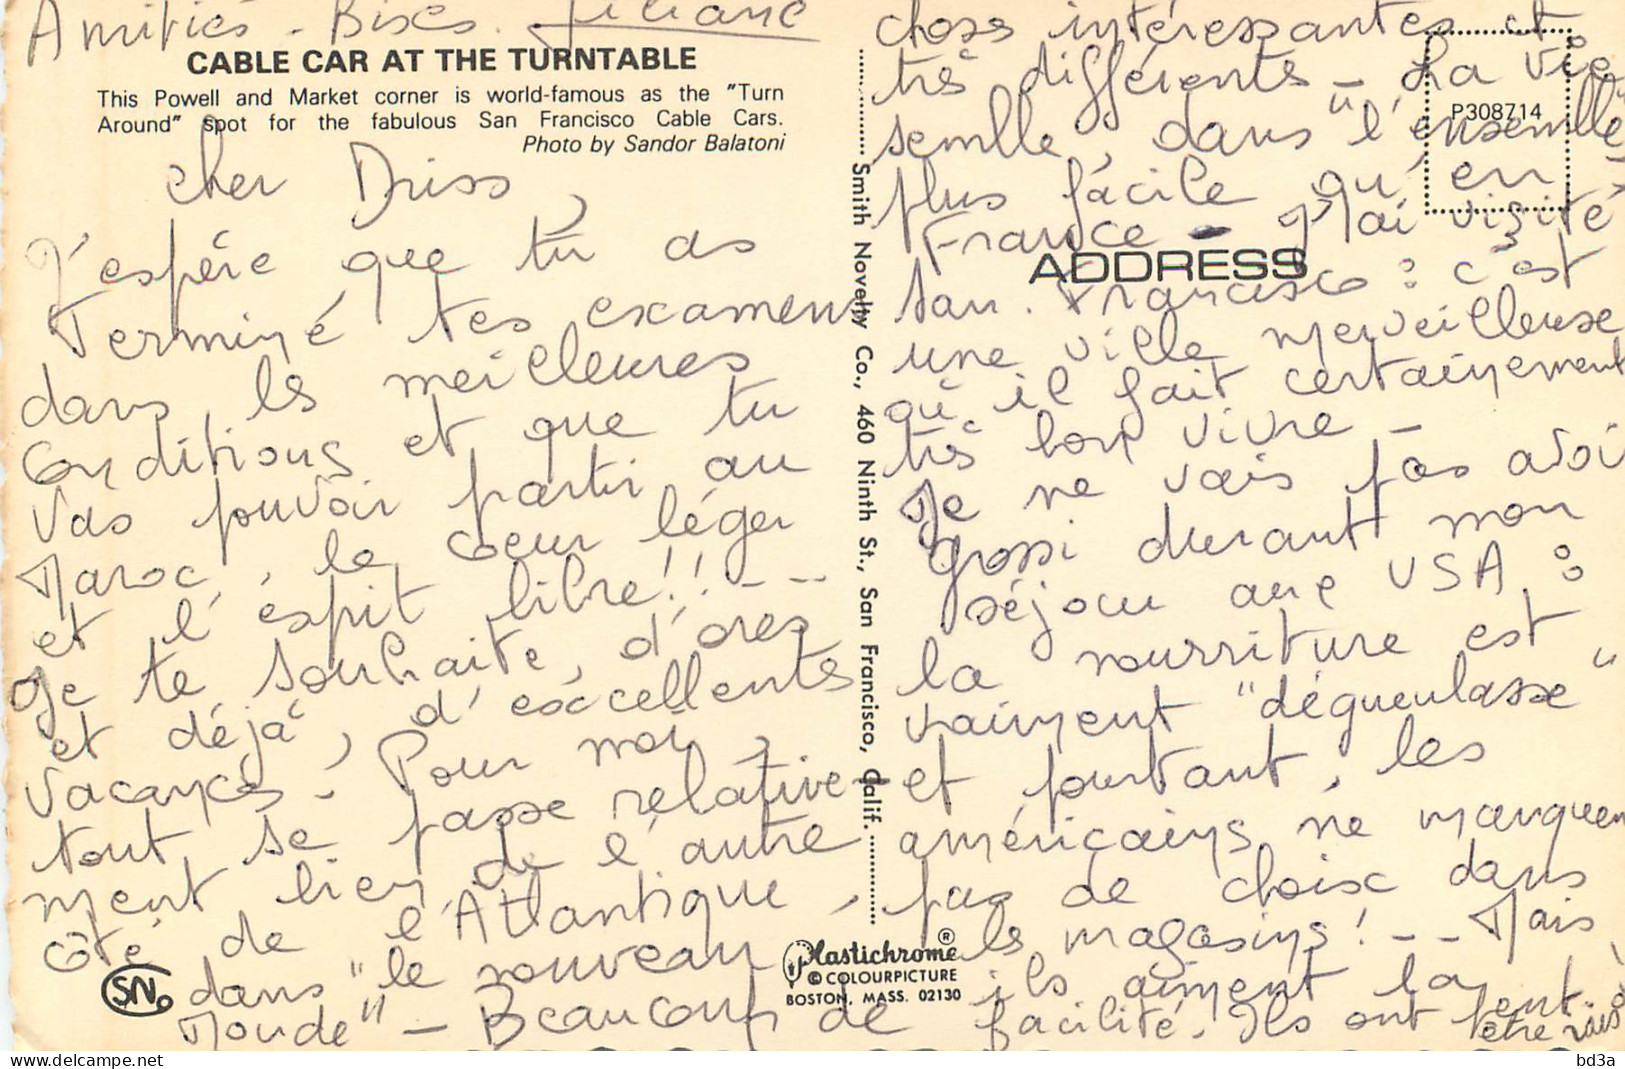 Amitiés - Bises. Liliane
CABLE CAR AT THE TURNTABLE
This Powell and Market corner is world-famous as the "Turn
Around" spot for the fabulous San Francisco Cable Cars.
Photo by Sandor Balatoni
Cher Driss,
J'espère que tu as
Terminé tes examens
dans les meilleures
Conditions et que tu
Vas pouvoir partir au
Maroc, le coeur léger
et l'esprit libre!! - -
Je te souhaite, d'ores
et déjà, d'excellents
Vacances - Pour moi,
tout se passe relative-
ment bien de l'autre
côté de l'Atlantique,
dans "le nouveau
Monde" - Beaucoup de
choses intéressantes et
très différentes - La vie
semble, dans "l'ensemble",
plus facile qu'en
France - J'ai visité
San. Francisco : c'est
une ville merveilleuse
où il fait certainement
très bon vivre -
Je ne vais pas avoir
grossi durant mon
séjour aux USA :
la nourriture est
vraiment "dégueulasse"
et pourtant, les
américains ne manquent
pas de choix dans
les magasins! - - Mais
ils aiment la
facilité. Ils ont peut-
être raison
P308714
ADDRESS
Smith Novelty Co., 460 Ninth St., San Francisco, Calif.
SN
Plastichrome®
© COLOURPICTURE
BOSTON, MASS. 02130
bd3a